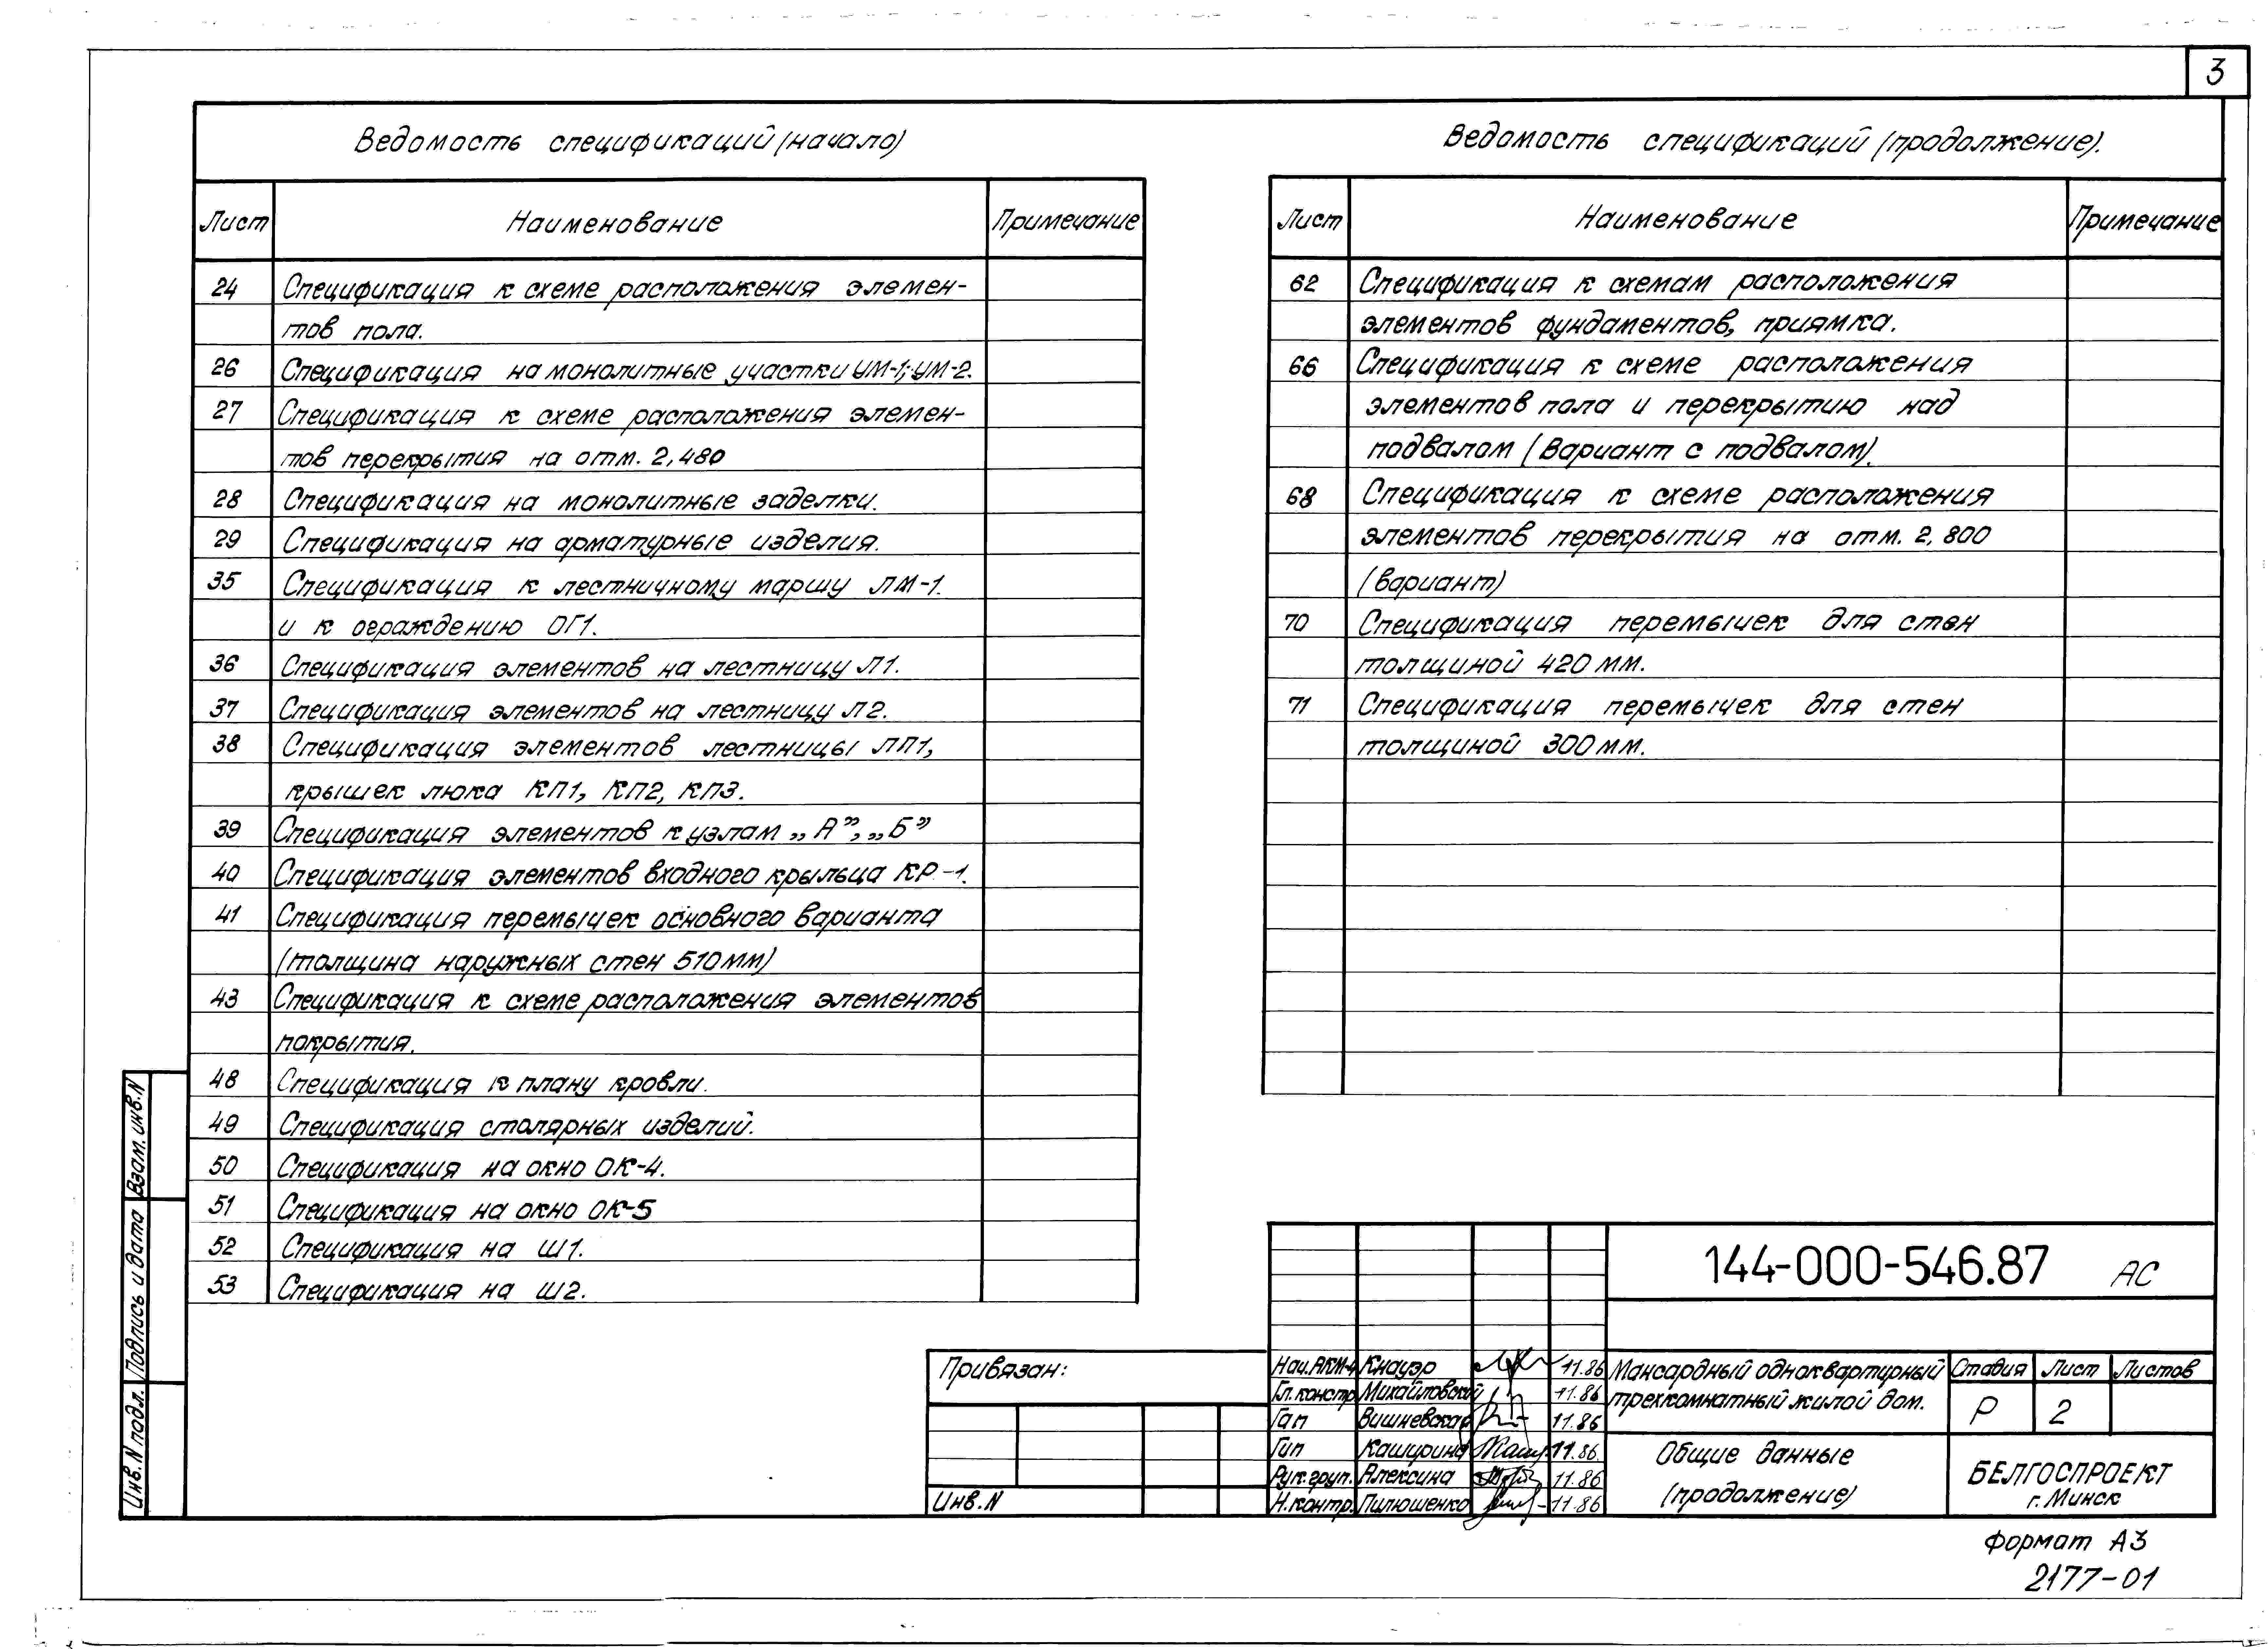 3
Ведомость спецификаций (начало)
Лист Наименование Примечание
24 Спецификация к схеме расположения элемен-
тов пола.
26 Спецификация на монолитные участки УМ-1; УМ-2.
27 Спецификация к схеме расположения элемен-
тов перекрытия на отм. 2,480
28 Спецификация на монолитные заделки.
29 Спецификация на арматурные изделия.
35 Спецификация к лестничному маршу ЛМ-1.
и к ограждению ОГ1.
36 Спецификация элементов на лестницу Л1.
37 Спецификация элементов на лестницу Л2.
38 Спецификация элементов лестницы ЛП1,
крышек люка КП1, КП2, КП3.
39 Спецификация элементов к узлам „А”, „Б”
40 Спецификация элементов входного крыльца КР-1.
41 Спецификация перемычек основного варианта
(толщина наружных стен 510мм)
43 Спецификация к схеме расположения элементов
покрытия.
48 Спецификация к плану кровли.
49 Спецификация столярных изделий.
50 Спецификация на окно ОК-4.
51 Спецификация на окно ОК-5
52 Спецификация на Ш1.
53 Спецификация на Ш2.
Ведомость спецификаций (продолжение).
Лист Наименование Примечание
62 Спецификация к схемам расположения
элементов фундаментов, приямка.
66 Спецификация к схеме расположения
элементов пола и перекрытию над
подвалом (Вариант с подвалом).
68 Спецификация к схеме расположения
элементов перекрытия на отм. 2,800
(вариант)
70 Спецификация перемычек для стен
толщиной 420 мм.
71 Спецификация перемычек для стен
толщиной 300 мм.
Взам. инв. N
Подпись и дата
Инв. N подл.
Привязан:
Инв. N
144-000-546.87 АС
Нач. АКМ-4 Кнауэр 11.86
Гл. констр. Михайловский 11.86
Гап Вишневская 11.86
Гип Кашурина 11.86.
Рук. груп. Алексина 11.86
Н. контр. Пилюшенко 11.86
Мансардный одноквартирный
трехкомнатный жилой дом.
Стадия Лист Листов
Р 2
Общие данные
(продолжение)
БЕЛГОСПРОЕКТ
г. Минск
Формат А3
2177-01